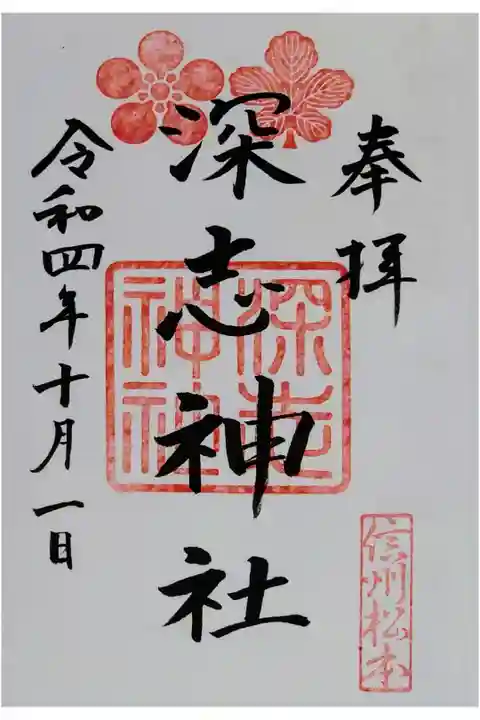 奉拝
深志神社
深志神社
令和四年十月一日
信州松本